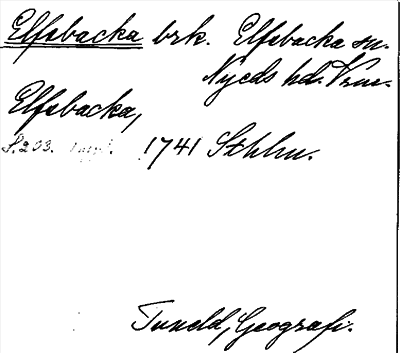 Elfsbacka brk. Elfsbacka sn.
Nyeds hd. Vrm.
Elfsbacka,
S. 203. 1741 Sthlm.
Tuneld, Geografi.